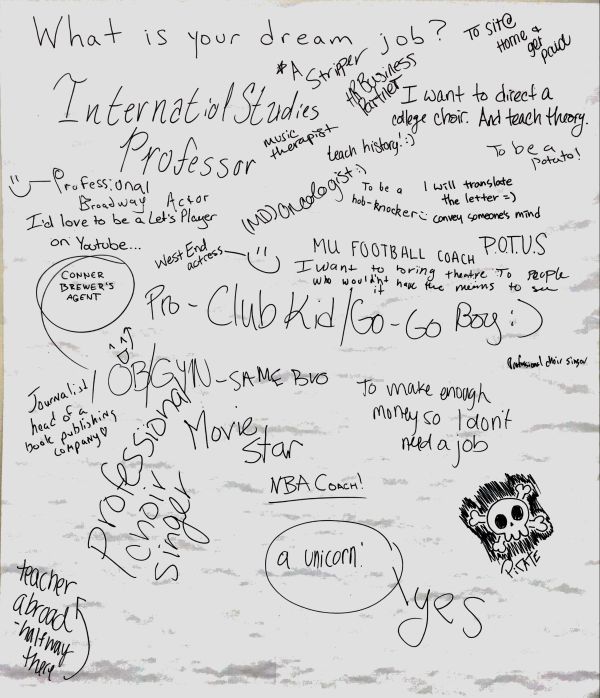 What is your dream job?
To sit@
Home &
get
paid
*A Stripper
HR Business
Partner
InternatialStudies
Professor
music
therapist
I want to direct a
college choir. And teach theory.
teach history! :)
To be a
potato!
Professional
Broadway Actor
(MD) Oncologist :)
To be a
hob-knocker
I will translate
the letter =)
convey someone's mind
I'd love to be a Let's Player
on Youtube...
West End
actress
MU FOOTBALL COACH
P.O.T.U.S
I want to bring theatre to people
who wouldn't have the means to see
it
CONNER
BREWER'S
AGENT
Pro-Club Kid/Go-Go Boy :)
Professional choir singer
/OB/GYN - SAME BUO
Journalist/
head of a
book publishing
company
Professional
choir
singer
Movie
Star
To make enough
money so I don't
need a job
NBA COACH!
PIRATE
a unicorn!
yes
teacher
abroad
-halfway
there